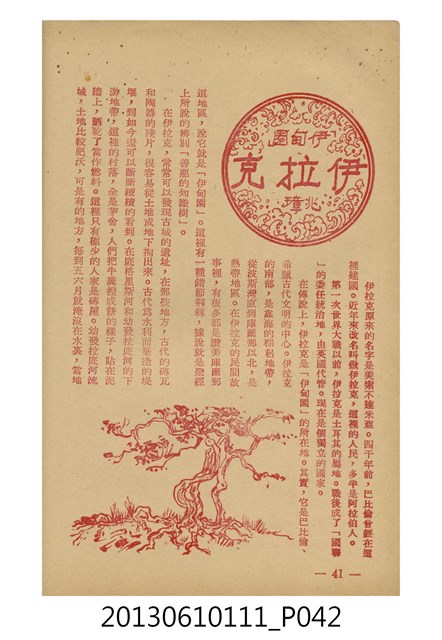 伊甸園
伊拉克
伊拉克原來的名字是美索不達米亞。四千年前,巴比倫曾經在這
裡建國。近年來改名叫做伊拉克,這裡的人民,多半是阿拉伯人。
第一次世界大戰以前,伊拉克是土耳其的屬地。戰後成了「國聯
」的委任統治地,由英國代管。現在是個獨立的國家。
在傳說上,伊拉克是「伊甸園」的所在地。其實,它是巴比倫、
希臘古代文明的中心。伊拉克
的南部,是靠海的棕櫚地帶,
從波斯灣直到庫爾那以北,是
熱帶地區。在伊拉克的民間故
事裡,有很多都是讚美庫爾那
這地區,說它就是「伊甸園」。這裡有一種錯節,據說就是聖經
上所說的辨別「善惡的知識樹」。
在伊拉克,常常可以發現古城的遺址,在那些地方,古代的磚瓦
和陶器的殘片,很容易從土地或地下掏出來。古代為水利而築造的堤
堰,到如今還可以斷斷續續的看到。在底格里斯河和幼發拉底河的下
游地帶,這裡的村落,全是茅舍,人們把牛糞揑成餅的樣子,貼在泥
牆上,晒乾了當作燃料。這裡只有極少的人家是磚屋。幼發拉底河流
域,土地比較肥沃,可是有的地方,每到五六月就淹沒在水裏,當地
— 41 —
20130610111_P042